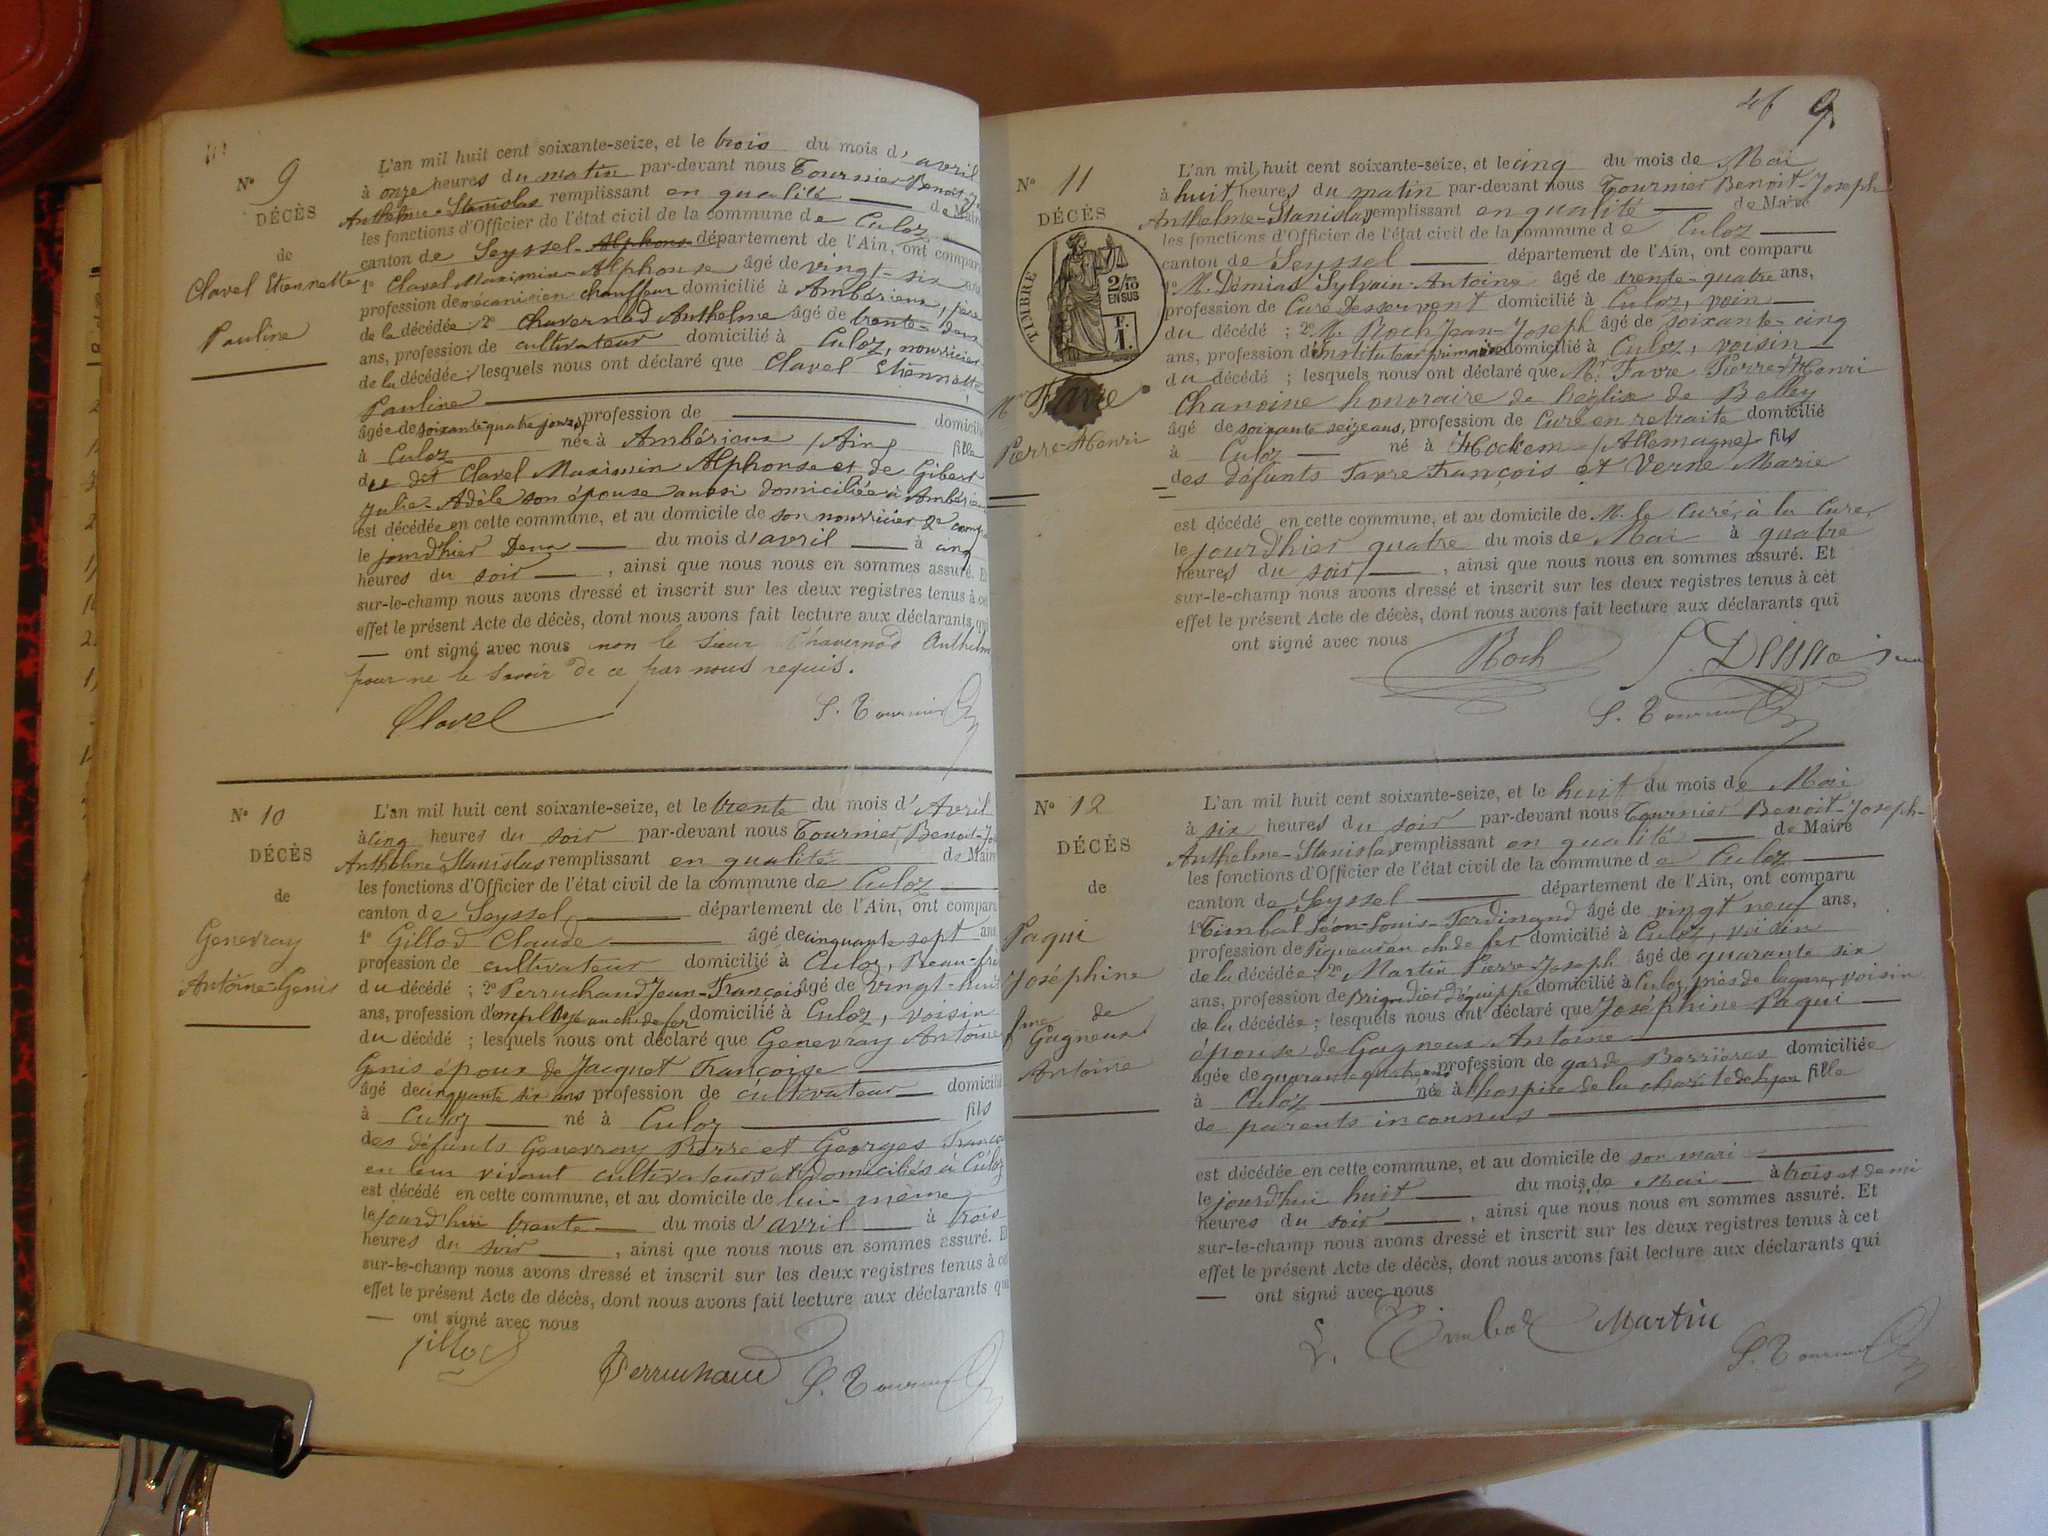 Nº 9
DÉCÈS
de
Clavel Etiennette
Pauline
L'an mil huit cent soixante-seize, et le trois du mois d'avril
à onze heures du matin par-devant nous Tournier Benoit-J
Anthelme-Stanislas remplissant en qualité de Maire
les fonctions d'Officier de l'état civil de la commune de Culoz
canton de Seyssel - Alphonse département de l'Ain, ont comparu
1º Clavel Maximin-Alphonse âgé de vingt-six ans
profession de mécanicien chauffeur domicilié à Ambérieux, père
de la décédée; 2º Chavernod Anthelme âgé de trente-deux
ans, profession de cultivateur domicilié à Culoz, nourricier
de la décédée; lesquels nous ont déclaré que Clavel Etiennette
Pauline
âgée de soixante quatre jours profession de domicilié
à Culoz née à Ambérieux (Ain) fille
du dit Clavel Maximin Alphonse et de Gibert
Julie-Adèle son épouse aussi domiciliée à Ambérieux
est décédée en cette commune, et au domicile de son nourricier 2e comp
le jourd'hier Deux du mois d'avril à cinq
heures du soir, ainsi que nous nous en sommes assuré. Et
sur-le-champ nous avons dressé et inscrit sur les deux registres tenus à cet
effet le présent Acte de décès, dont nous avons fait lecture aux déclarants, qui
— ont signé avec nous non le sieur Chavernod Anthelm
pour ne le savoir de ce par nous requis.
Clavel S. Tournier
Nº 10
DÉCÈS
de
Genevray
Antoine-Genis
L'an mil huit cent soixante-seize, et le trente du mois d'Avril
à cinq heures du soir par-devant nous Tournier, Benoit-Jo
Anthelme Stanislas remplissant en qualité de Maire
les fonctions d'Officier de l'état civil de la commune de Culoz
canton de Seyssel, département de l'Ain, ont comparu
1º Gillod Claude âgé de cinquante sept ans
profession de cultivateur domicilié à Culoz, Beau-frè
du décédé ; 2º Perruchaud Jean-François âgé de vingt-huit
ans, profession d'employé au ch. de fer domicilié à Culoz, voisin
du décédé ; lesquels nous ont déclaré que Genevray Antoine
Genis époux de Jacquet Françoise
âgé de cinquante six ans profession de cultivateur domicilié
à Culoz né à Culoz fils
des défunts Genevray Pierre et Georges Franço
en leur vivant cultivateurs et domiciliés à Culoz
est décédé en cette commune, et au domicile de lui-même
le jourd'hui trente du mois d'avril à trois
heures du soir, ainsi que nous nous en sommes assuré. Et
sur-le-champ nous avons dressé et inscrit sur les deux registres tenus à cet
effet le présent Acte de décès, dont nous avons fait lecture aux déclarants qui
— ont signé avec nous
Gillod
Perruchaud S. Tournier
9
Nº 11
DÉCÈS
TIMBRE
2/10
EN SUS
F.
1.
Mr Favre
Pierre-Henri
L'an mil huit cent soixante-seize, et le cinq du mois de Mai
à huit heures du matin par-devant nous Tournier Benoit-Joseph
Anthelme-Stanislas remplissant en qualité de Maire
les fonctions d'Officier de l'état civil de la commune de Culoz
canton de Seyssel département de l'Ain, ont comparu
1º M. Démias Sylvain-Antoine âgé de trente-quatre ans,
profession de Curé Desservent domicilié à Culoz, voisin
du décédé ; 2º M. Roch Jean-Joseph âgé de soixante-cinq
ans, profession d'instituteur primaire domicilié à Culoz, voisin
du décédé ; lesquels nous ont déclaré que Mr. Favre Pierre-Henri
Chanoine honoraire de l'église de Belley
âgé de soixante seize ans, profession de Curé en retraite domicilié
à Culoz né à Hockem (Allemagne) fils
des défunts Favre François et Verne Marie
est décédé en cette commune, et au domicile de M. le Curé, à la Cure,
le jourd'hier quatre du mois de Mai à quatre
heures du soir, ainsi que nous nous en sommes assuré. Et
sur-le-champ nous avons dressé et inscrit sur les deux registres tenus à cet
effet le présent Acte de décès, dont nous avons fait lecture aux déclarants qui
ont signé avec nous
Roch
S. Tournier
Nº 12
DÉCÈS
de
Paqui
Joséphine
fme de
Gagneux
Antoine
L'an mil huit cent soixante-seize, et le huit du mois de Mai
à six heures du soir par-devant nous Tournier Benoit-Joseph-
Anthelme-Stanislas remplissant en qualité de Maire
les fonctions d'Officier de l'état civil de la commune de Culoz
canton de Seyssel département de l'Ain, ont comparu
1º Timbal Léon-Louis-Ferdinand âgé de vingt neuf ans,
profession de Piqueur au ch. de fer domicilié à Culoz, voisin
de la décédée; 2º Martin Pierre-Joseph âgé de quarante six
ans, profession de Brigadier d'équippe domicilié à Culoz, près de la gare, voisin
de la décédée; lesquels nous ont déclaré que Joséphine Paqui
épouse de Gagneux Antoine
âgée de quarante quatre ans profession de garde Barrières domiciliée
à Culoz née à l'hospice de la charité de Lyon fille
de parents inconnus
est décédée en cette commune, et au domicile de son mari
le jourd'hui huit du mois de Mai à trois et demi
heures du soir, ainsi que nous nous en sommes assuré. Et
sur-le-champ nous avons dressé et inscrit sur les deux registres tenus à cet
effet le présent Acte de décès, dont nous avons fait lecture aux déclarants qui
— ont signé avec nous
L. Timbal Martin
S. Tournier